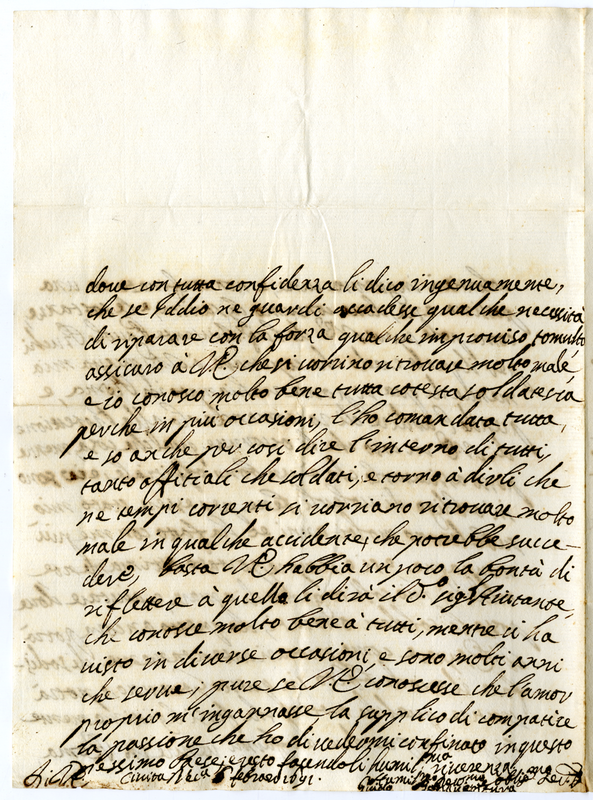 dove con tutta confidenza li dico ingenuamente,
che se Iddio ne guardi accadesse qualche necessità
di riparare con la forza qualche improviso tomulto
assicuro à VE che si vorrino ritrovare molto male,
e io conosco molto bene tutta cotesta soldatesca
perche in più occasioni, l'ho comandata tutta,
e so anche per cosi dire l'interno di tutti,
tanto offitiali che soldati, e torno à dirli che
ne tempi correnti si vorriano ritrovare molto
male in qualche accidente, che potrebbe succe-
dere, basta VE habbia un poco la bontà di
riflettere à quello li dirà il d.o sig.r Aiutante,
che conosce molto bene à tutti, mentre si ha
visto in diverse occasioni, e sono molti anni
che serve; pure se VE conoscesse che l'amor
proprio m'ingannasse la supplico di compatire
la passione che ho di vedermi confinato in questo
pessimo Paese; e resto facendoli humil.ma riverenza
Di VE Civita 6 febraro 1691.